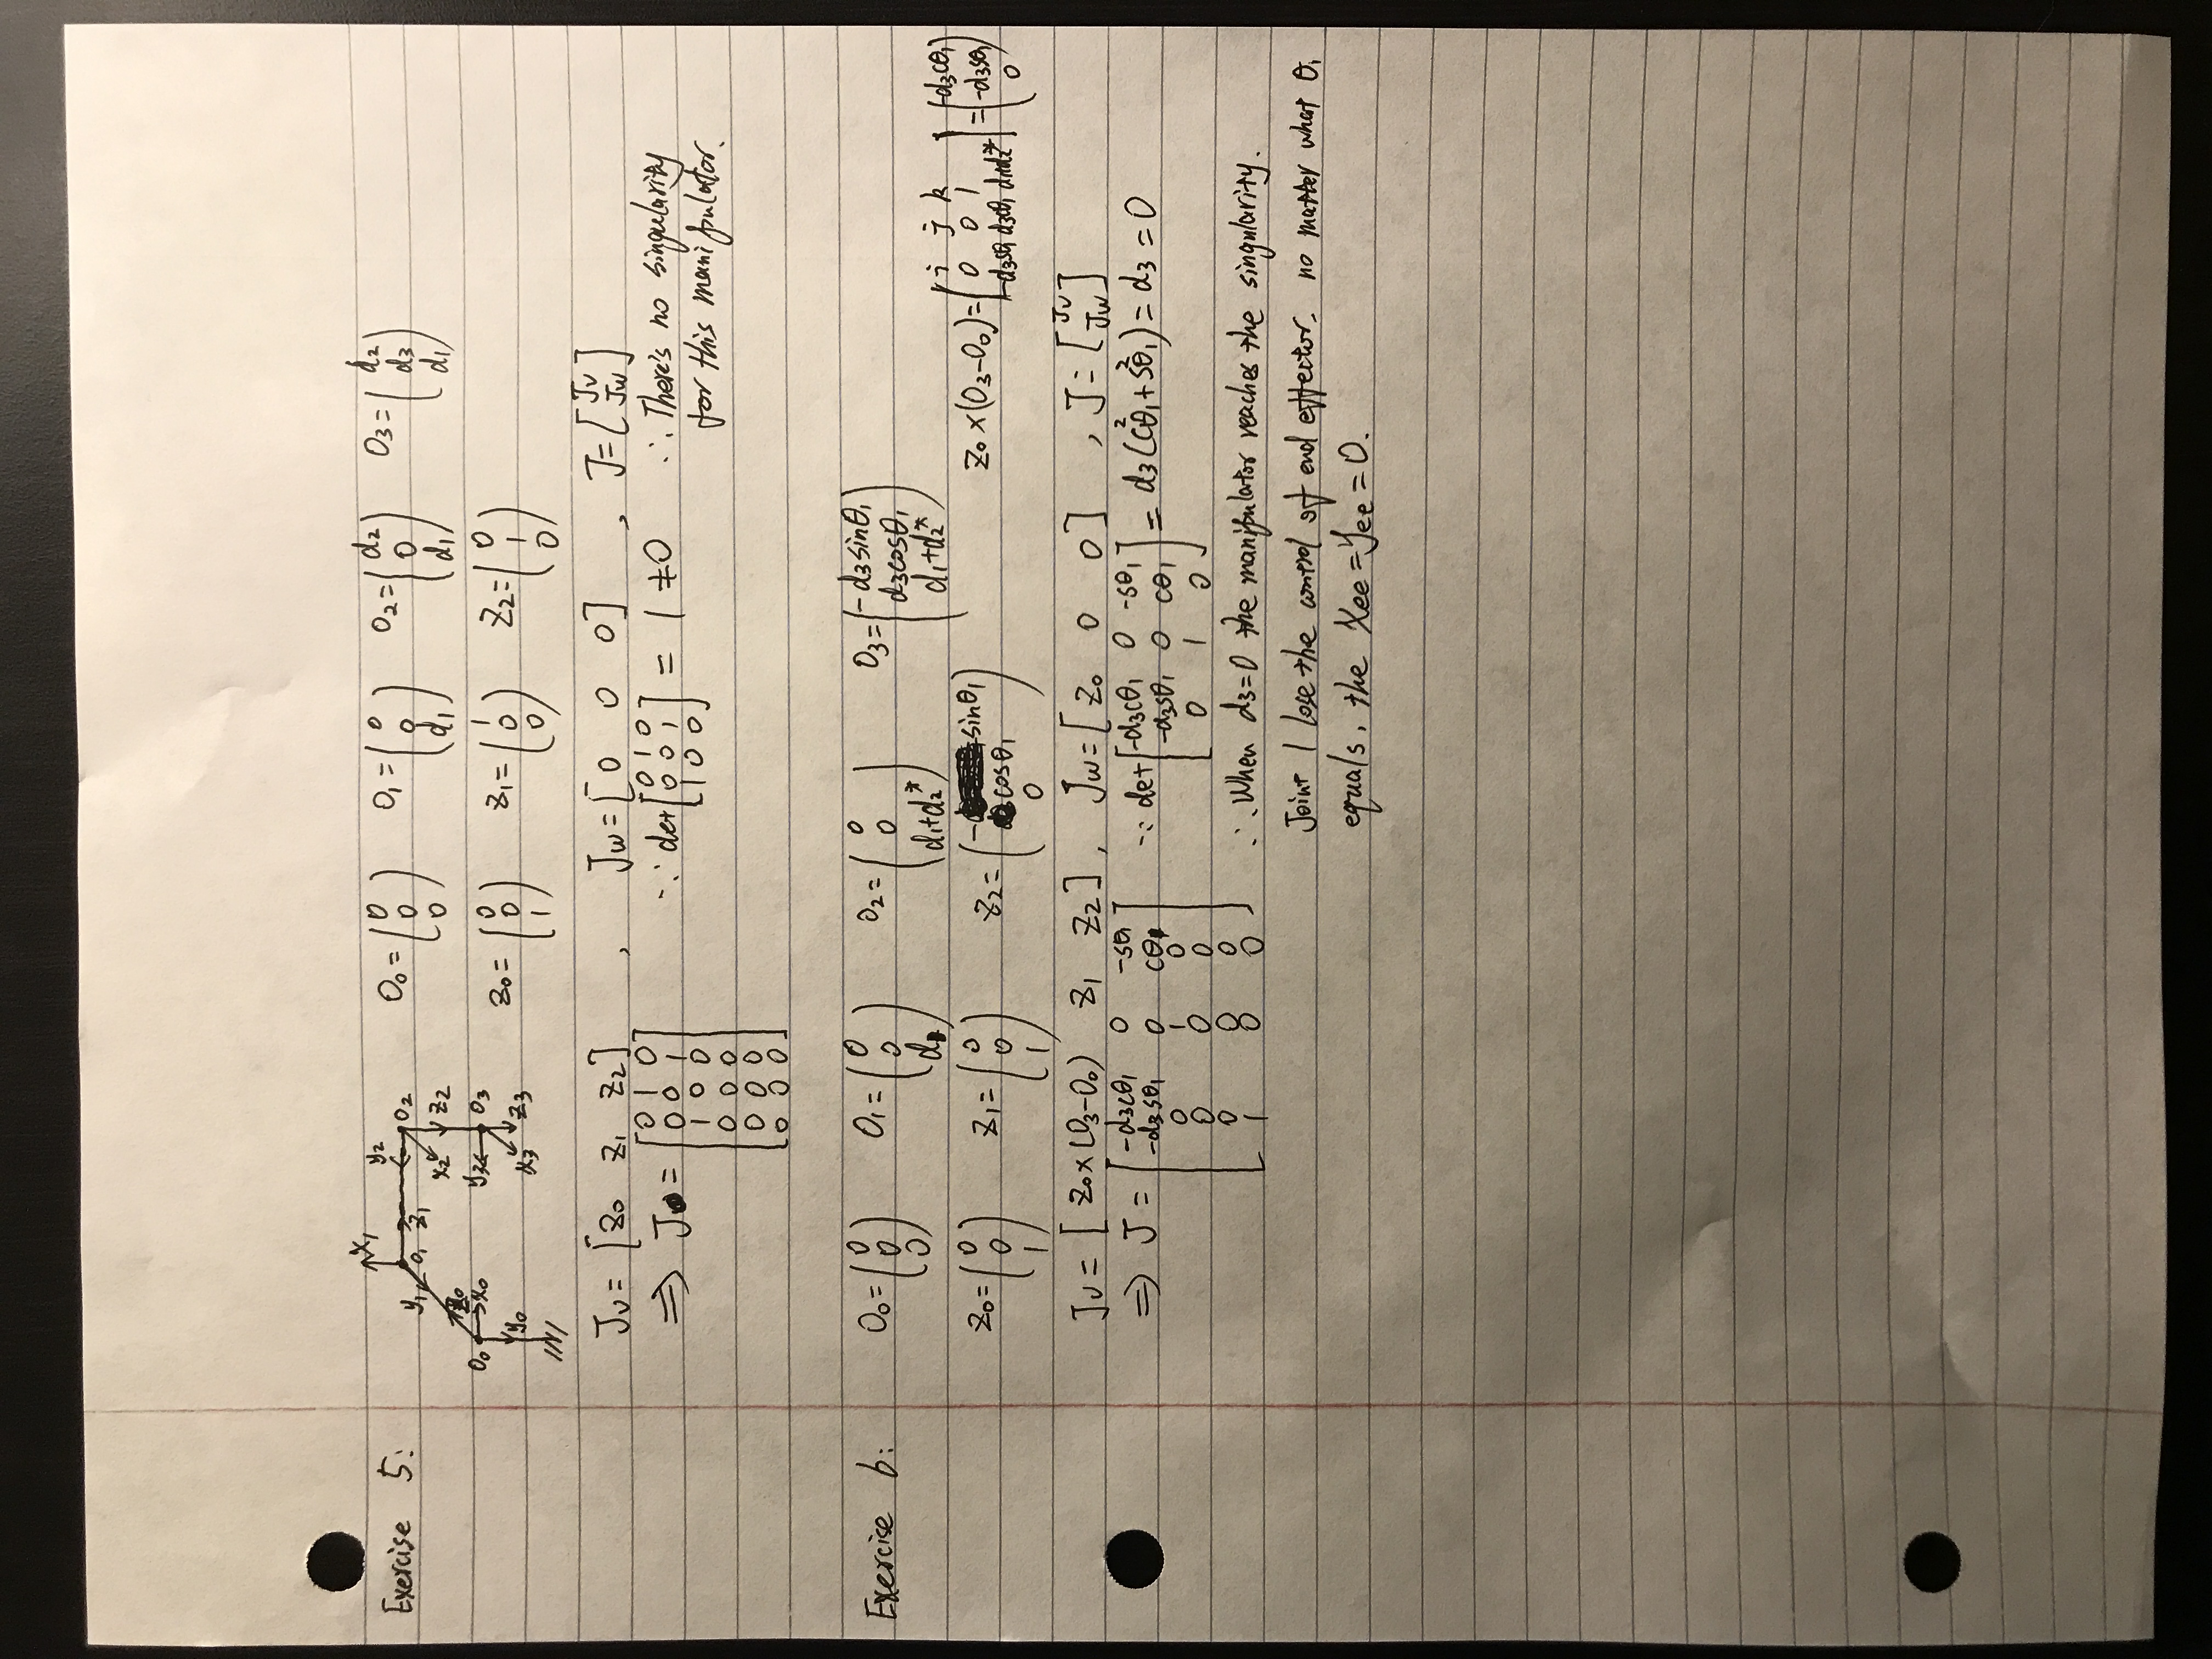 Exercise 5:
X₁ y₂ y₁ O₁ Z₁ O₂ X₂ Z₂ Z₀ O₀ X₀ y₃ O₃ y₀ X₃ Z₃
O₀ = (0 0 0) O₁ = (0 0 d₁) O₂ = (d₂ 0 d₁) O₃ = (d₂ d₃ d₁)
Z₀ = (0 0 1) Z₁ = (1 0 0) Z₂ = (0 1 0)
Jv = [Z₀ Z₁ Z₂] , Jw = [0 0 0] , J = [Jv Jw]
⇒ J = [0 1 0
0 0 1
1 0 0
0 0 0
0 0 0
0 0 0]
∵ det [0 1 0
0 0 1
1 0 0] = 1 ≠ 0 ∴ There's no singularity
for this manipulator.
Exercise 6:
O₀ = (0 0 0) O₁ = (0 0 d₁) O₂ = (0 0 d₁+d₂*) O₃ = (-d₃sinθ₁ d₃cosθ₁ d₁+d₂*)
Z₀ = (0 0 1) Z₁ = (0 0 1) Z₂ = (-sinθ₁ cosθ₁ 0)
Z₀×(O₃-O₀) = |i j k
0 0 1
-d₃sθ₁ d₃cθ₁ d₁+d₂*| = (-d₃cθ₁ -d₃sθ₁ 0)
Jv = [Z₀×(O₃-O₀) Z₁ Z₂] , Jw = [Z₀ 0 0] , J = [Jv Jw]
⇒ J = [-d₃cθ₁ 0 -sθ₁
-d₃sθ₁ 0 cθ₁
0 1 0
0 0 0
0 0 0
1 0 0]
∵ det [-d₃cθ₁ 0 -sθ₁
-d₃sθ₁ 0 cθ₁
0 1 0] = d₃(c²θ₁+s²θ₁) = d₃ = 0
∴ When d₃=0 the manipulator reaches the singularity.
Joint 1 lose the control of end effector. no matter what θ₁
equals, the Xee = Yee = 0.